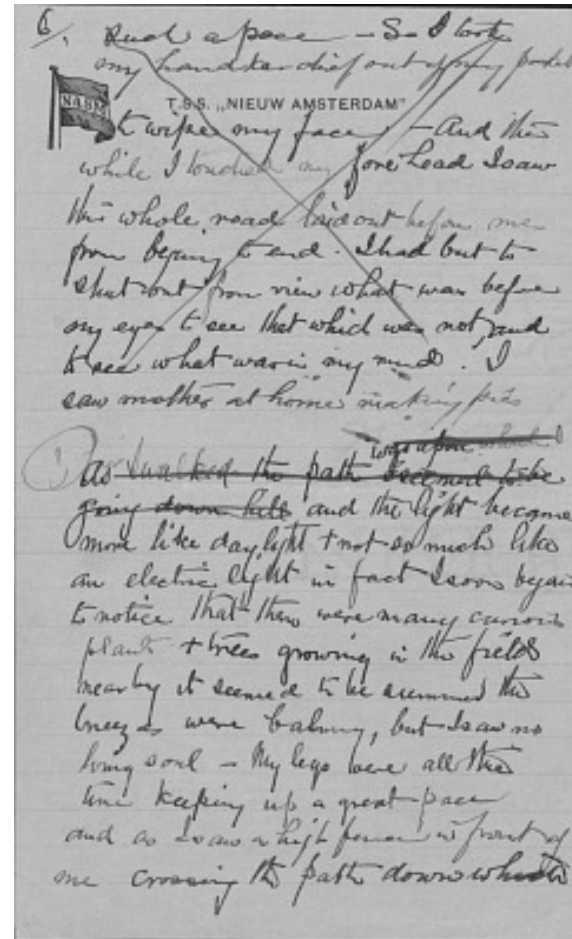 6/.
such a pace — So I took
my handkerchief out of my pocket
N.A.S.M.
T.S.S. „NIEUW AMSTERDAM"
to wipe my face — And then
while I touched my forehead I saw
this whole road laid out before me
from beging to end. I had but to
shut out from view what was before
my eyes to see that which was not, and
to see what was in my mind. I
saw mother at home making pies
was upon which I
as I walked the path seemed to be
going down hill and the light became
more like day light + not so much like
an electric light in fact I soon began
to notice that there were many curious
plants + trees growing in the fields
near by it seemed to be summer the
breezes were balmy, but I saw no
living soul — My legs were all this
time keeping up a great pace
and as I saw a high fence in front of
me crossing the path down